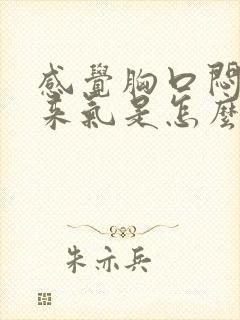 感覺胸口悶
來氣是怎麼
朱亦兵